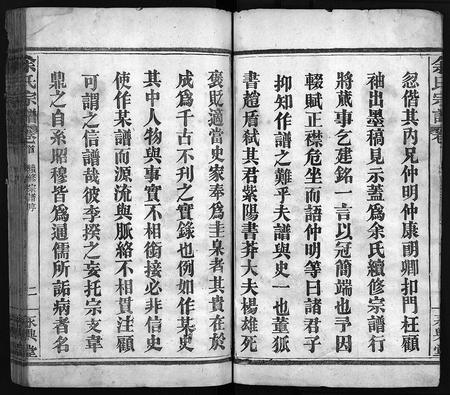 忽偕其內兄仲明仲康明卿扣門枉顧
袖出墨稿見示蓋為余氏續修宗譜行
將蕆事乞建銘一言以冠簡端也予因
輟賦正襟危坐而語仲明等曰諸君子
抑知作譜之難乎夫譜與史一也董狐
書趙盾弑其君紫陽書莽大夫楊雄死
褒貶適當史家奉為圭臬者其貴在於
成為千古不刋之實錄也例如作某史
其中人物與事實不相銜接必非信史
使作某譜而源流與脈絡不相貫注顧
可謂之信譜哉彼李揆之妄托宗支韋
鼎之自系昭穆皆為通儒所詬病者名
余氏宗譜
卷首
續修宗譜序
二
永興堂